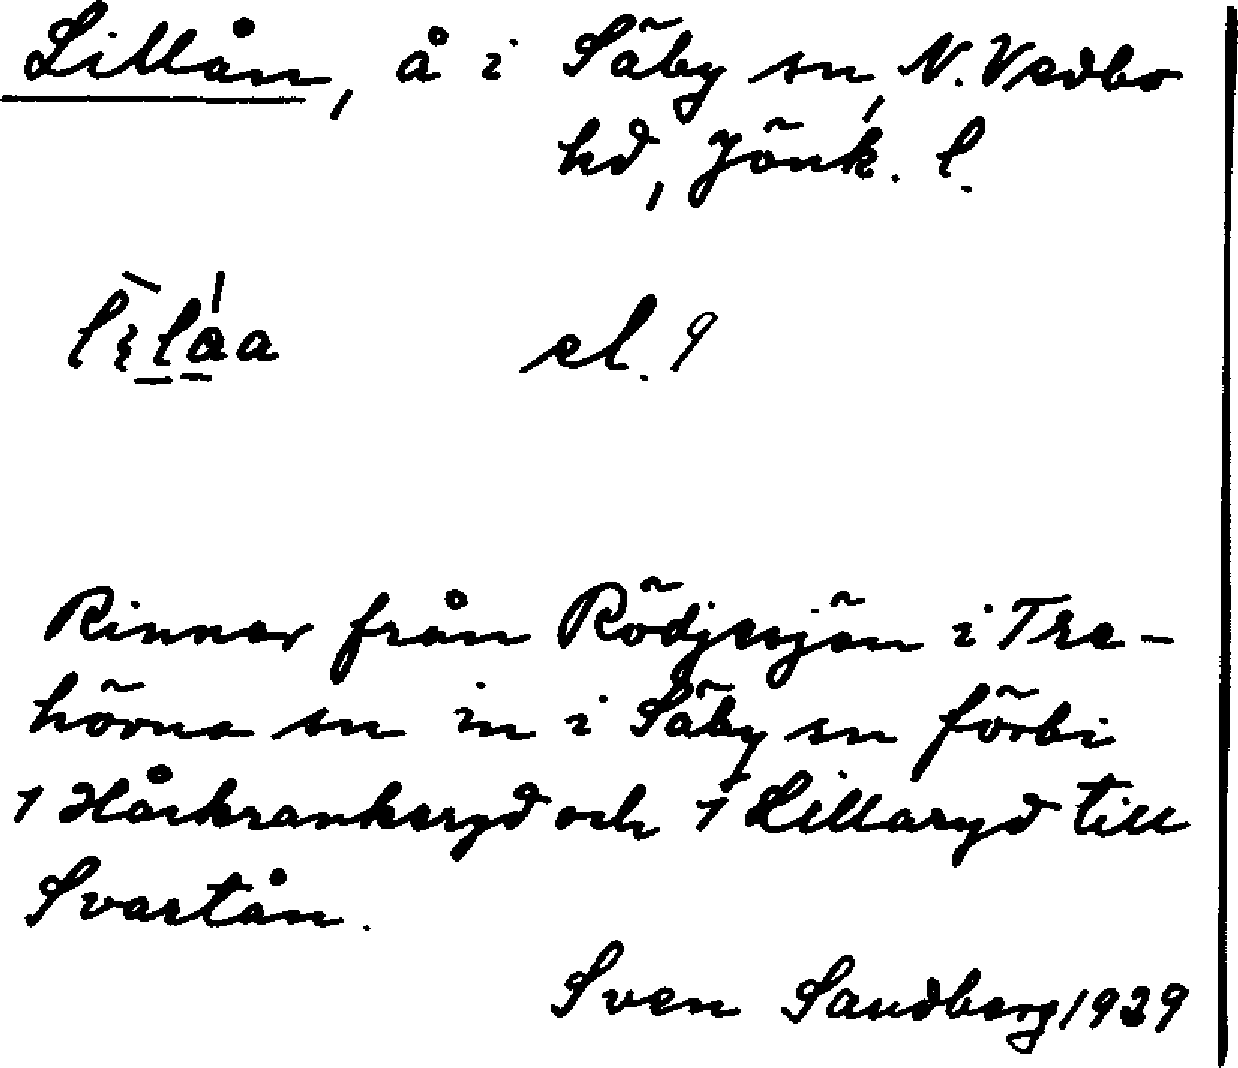 Lillån, å i Säby sn, N. Vedbo
hd, Jönk. l.
el. 9
Rinner från Rödjesjön i Tre-
hörna sn in i Säby sn förbi
1 Hårkranksryd och 1 Lillaryd till
Svartån.
Sven Sandberg 1929